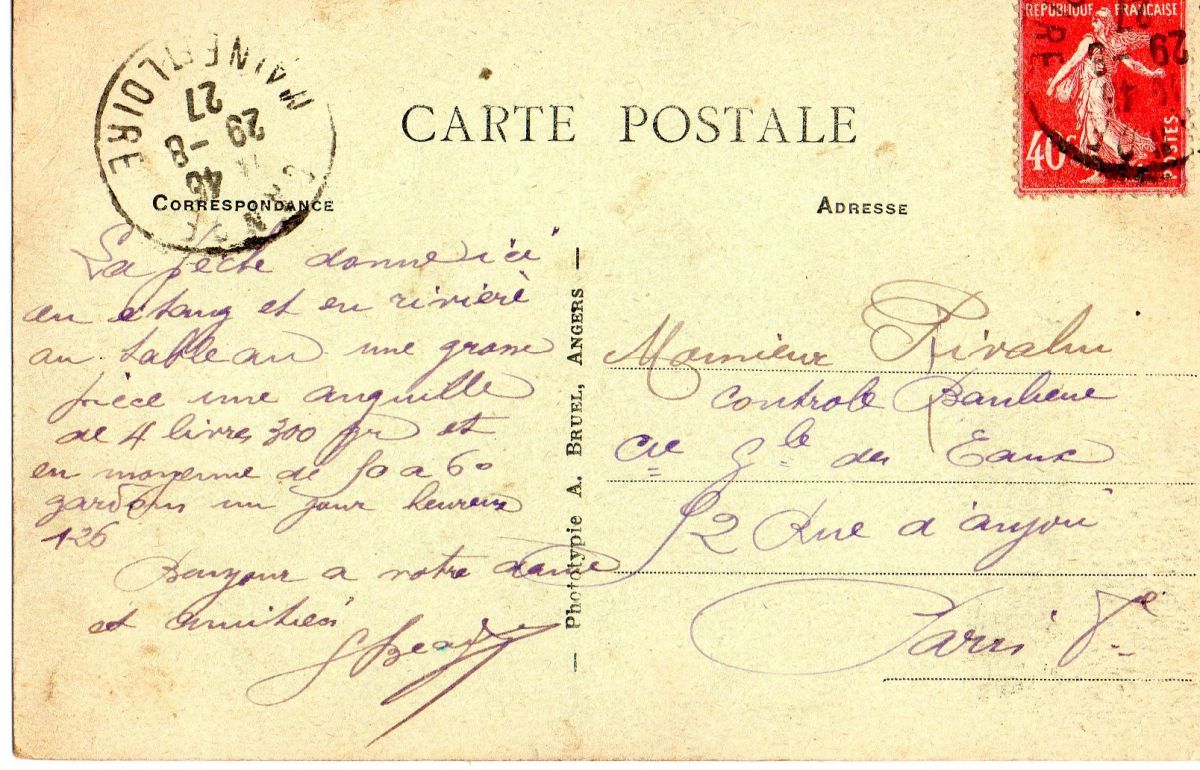 RÉPUBLIQUE FRANÇAISE
40c
POSTES
MAINE ET LOIRE
29 - 8
27
CARTE POSTALE
CORRESPONDANCE
ADRESSE
La pêche donne ici
en etang et en rivière
au tableau une grosse
pièce une anguille
de 4 livres 300 gr et
en moyenne de 50 a 60
gardons un jour heureux
126
Bonjour a votre dame
et amitiés
— Phototypie A. BRUEL, ANGERS —
Monsieur
controle Banlieue
Cie Gle des Eaux
52 Rue d'anjou
Paris 8e